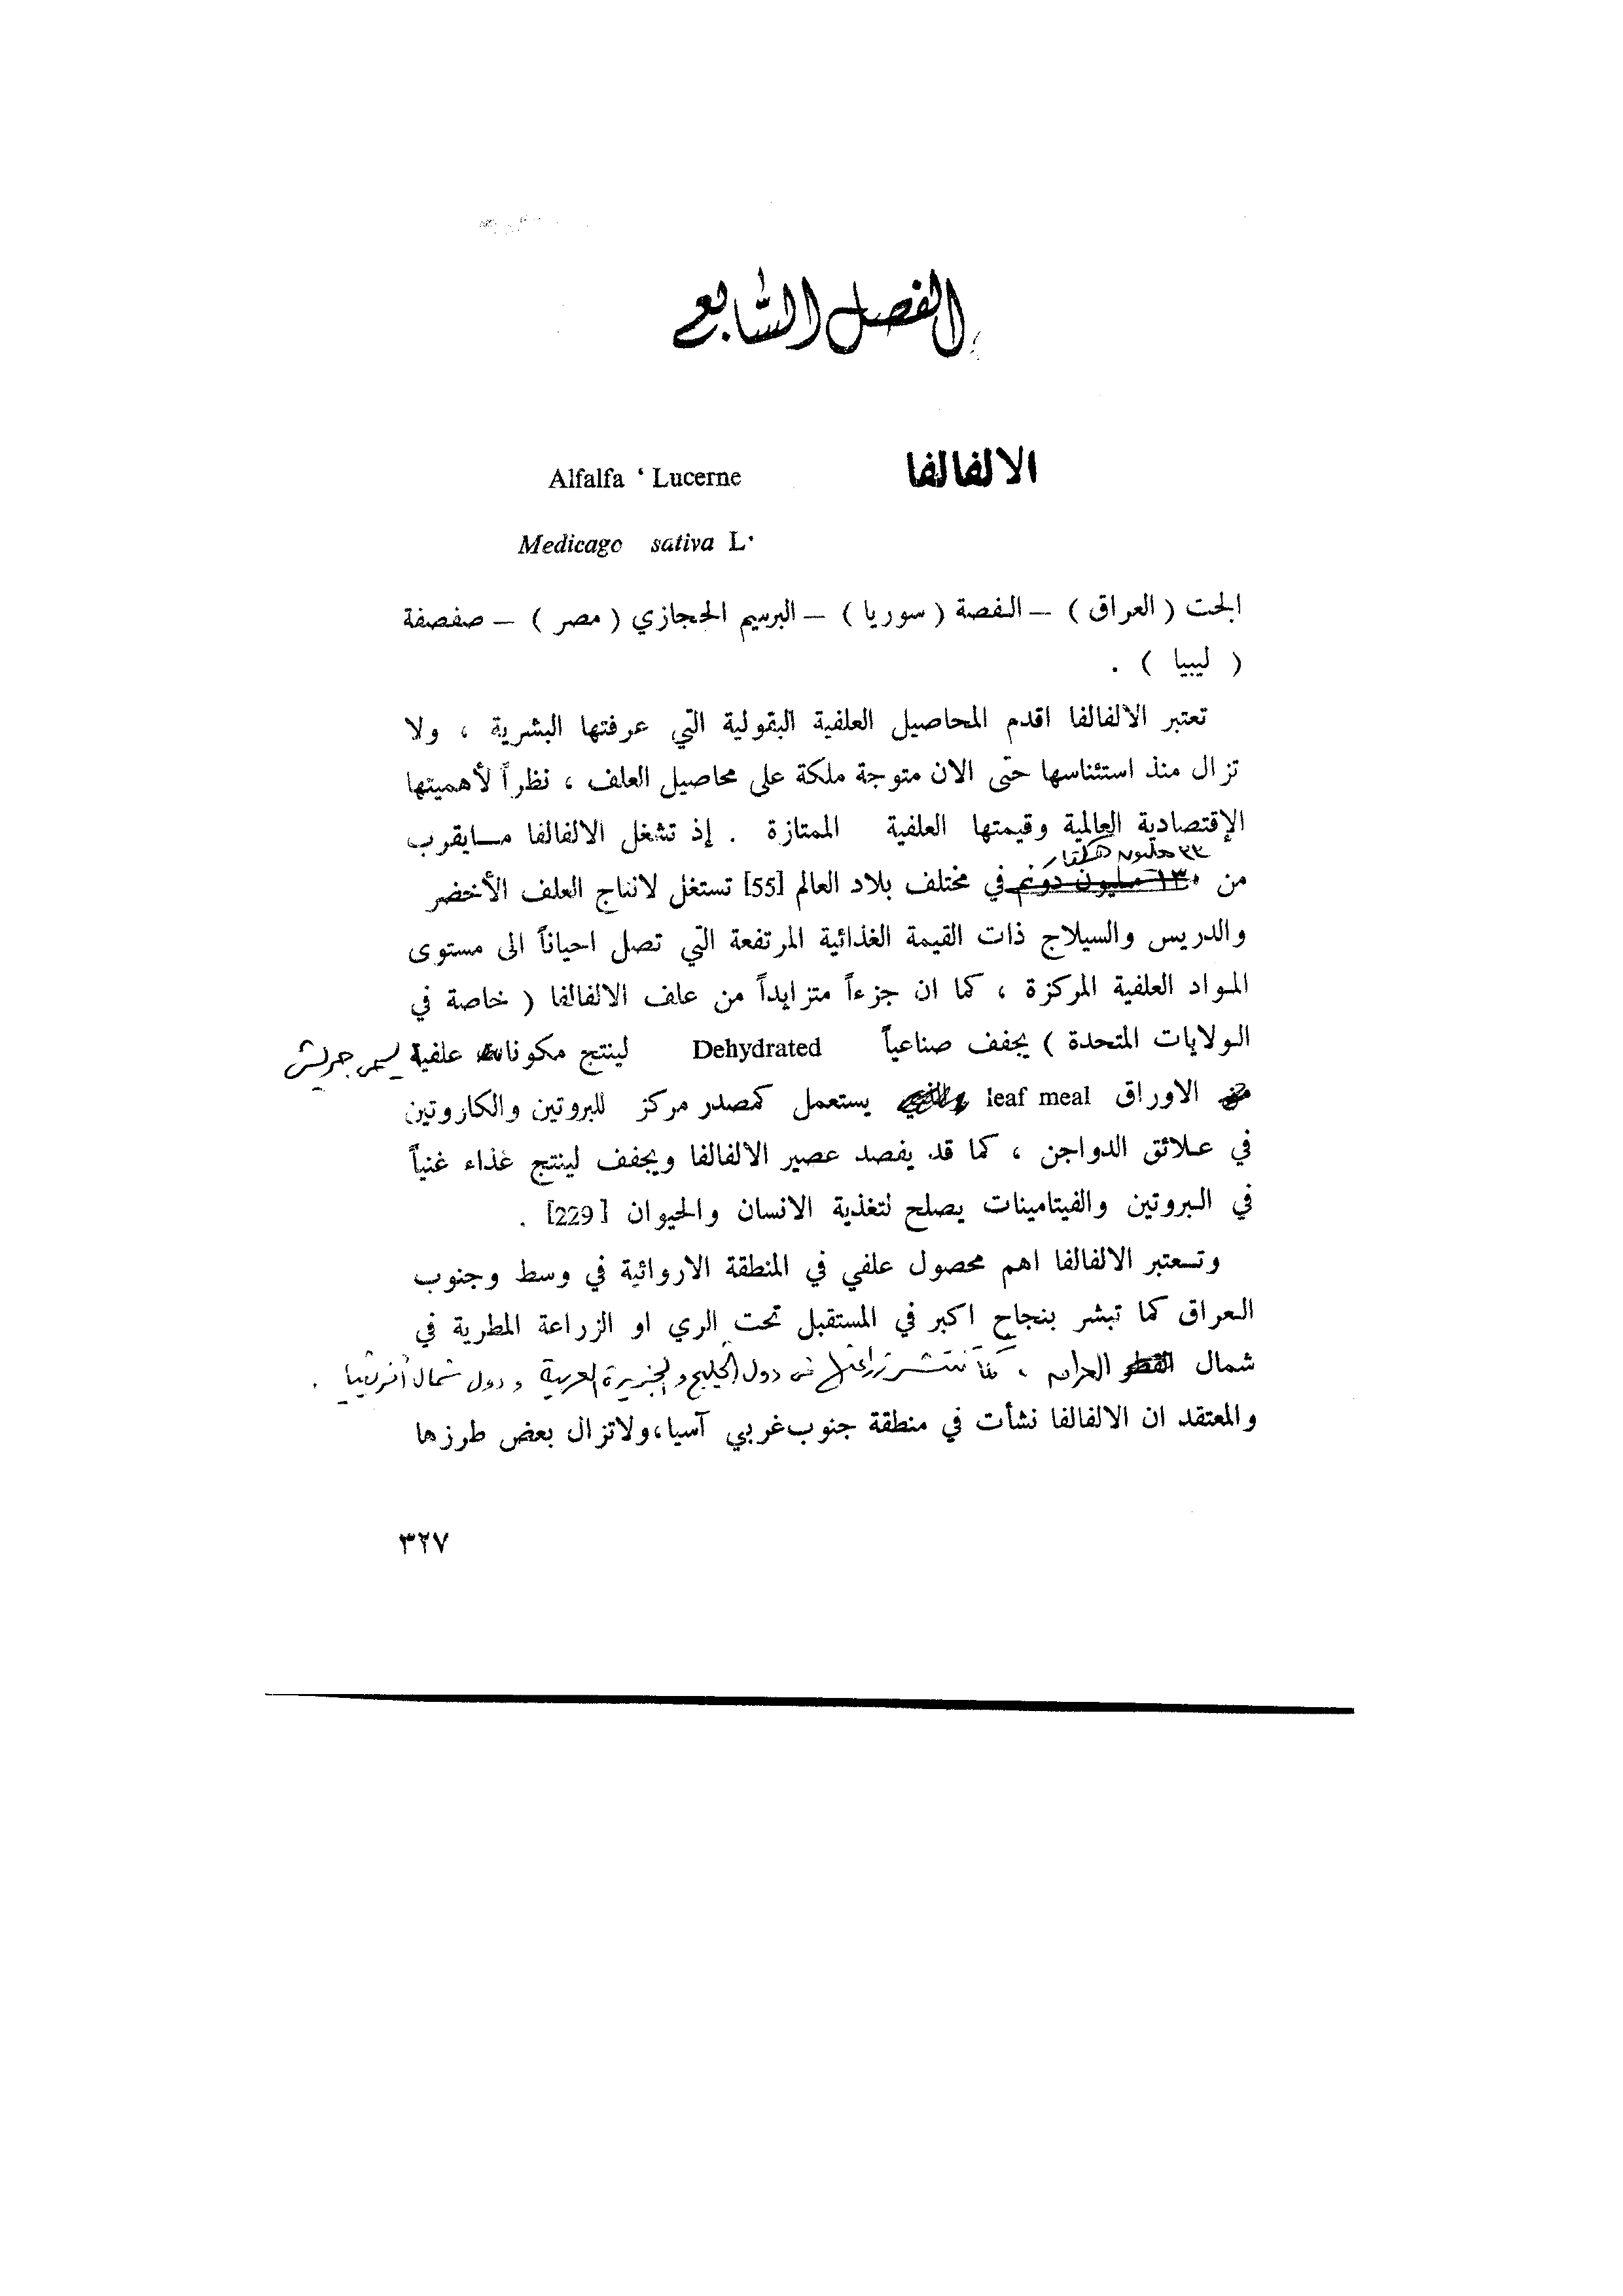 الفصل السّابع
الالفالفا
Alfalfa ‘ Lucerne
Medicago sativa L.
الجت ( العراق ) – الفصة ( سوريا ) – البرسيم الحجازي ( مصر ) – صفصفة
( ليبيا ) .
تعتبر الالفالفا اقدم المحاصيل العلفية البقولية التي عرفتها البشرية ، ولا
تزال منذ استئناسها حتى الان متوجة ملكة على محاصيل العلف ، نظراً لأهميتها
الإقتصادية العالمية وقيمتها العلفية الممتازة . إذ تشغل الالفالفا مايقرب
٣٣ مليون هكتار
من ١٣٠ مليون دونم في مختلف بلاد العالم [55] تستغل لانتاج العلف الأخضر
والدريس والسيلاج ذات القيمة الغذائية المرتفعة التي تصل احياناً الى مستوى
المواد العلفية المركزة ، كما ان جزءاً متزايداً من علف الالفالفا ( خاصة في
الولايات المتحدة ) يجفف صناعياً Dehydrated لينتج مكونات علفية يسمى جريش
الاوراق leaf meal يستعمل كمصدر مركز للبروتين والكاروتين
في علائق الدواجن ، كما قد يفصد عصير الالفالفا ويجفف لينتج غذاء غنياً
في البروتين والفيتامينات يصلح لتغذية الانسان والحيوان [229] .
وتعتبر الالفالفا اهم محصول علفي في المنطقة الاروائية في وسط وجنوب
العراق كما تبشر بنجاح اكبر في المستقبل تحت الري او الزراعة المطرية في
شمال القطر العراقي ، كما تنتشر زراعتها في دول الخليج والجزيرة العربية ودول شمال أفريقيا .
والمعتقد ان الالفالفا نشأت في منطقة جنوب غربي آسيا، ولاتزال بعض طرزها
٣٢٧